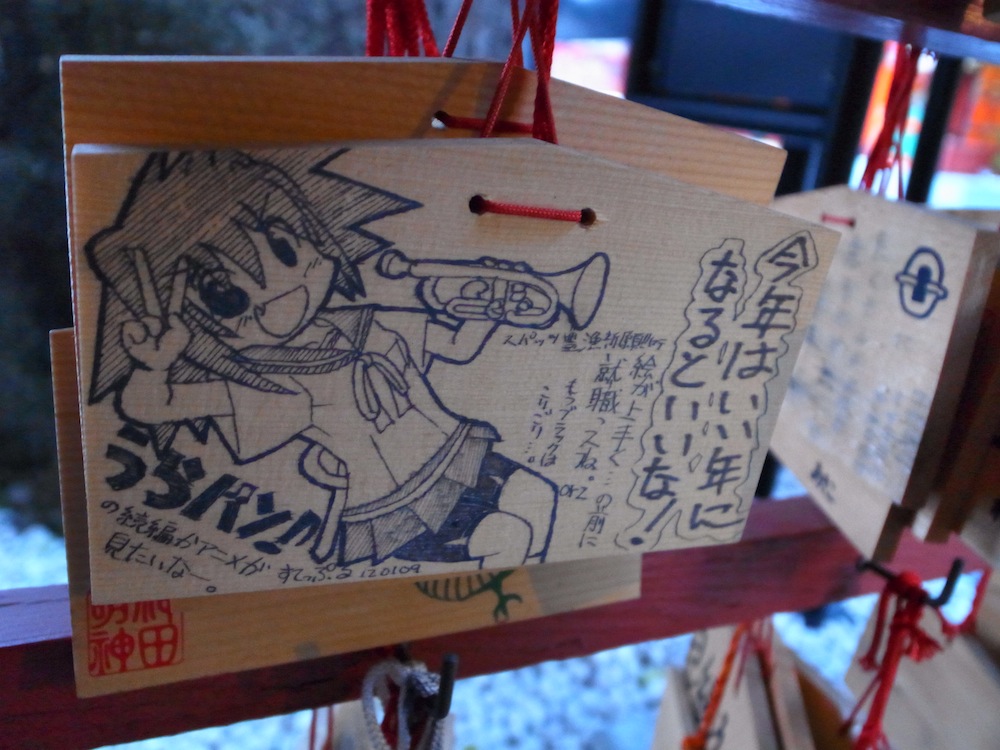 今年はいい年に
なるといいな!
スパッツ豊漁祈願
絵が上手く…の前に
就職っスね。
orz
もうブラックは
こりごりっ…
うぶパン!
の続編かアニメが
見たいなー。
すてっぷる 120109
神田
明神